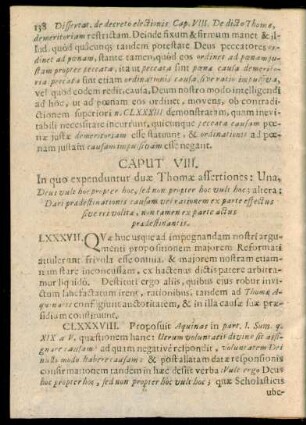 138 Dissertat. de decreto electionis Cap. VIII. De dicto Thomæ,
demeritoriam restrictam. Deinde fixum & firmum manet & il-
lud, quòd quicunq; tandem potestate Deus peccatores
ordinet ad pœnam, stante tamen, quòd eos ordinet ad pœnam
propter peccata, ita ut peccata sint pœnæ causa demerito-
ria peccata sint etiam ordinationis causa, sive ratio impulsiva,
vel quod eodem redit, causa, Deum nostro modo intelligendi
ad hoc, ut ad pœnam eos ordinet, movens, ob contradi-
ctionem superiori n. CLXXXIII demonstratam, quam inevi-
tabili necessitate incurrunt, quicunque peccata causam pœ-
næ justæ demeritoriam esse statuunt, & ordinationis ad pœ-
nam justam causam impulsivam esse negant.
CAPUT VIII.
In quo expenduntur duæ Thomæ assertiones: Una,
Deus vult hoc propter hoc, sed non propter hoc vult hoc; altera;
Dari prædestinationis causam vel rationem ex parte effectus
sive rei volitæ, non tamen ex parte actus
prædestinantis.
LXXXVII. QUæ hucusque ad impugnandam nostri argu-
menti propositionem majorem Reformati
attulerunt frivola esse omnia, & majorem nostram etiam-
num stare inconcussam, ex hactenus dictis patere arbitra-
mur liquidò. Destituti ergo aliis, quibus ejus robur invi-
ctum labefactatum irent, rationibus, tandem ad Thomæ A-
quinatis confugiunt auctoritatem, & in illa causæ suæ præ-
sidiam constituunt.
CLXXXVIII. Proposuit Aquinas in part. I. Sum. q.
XIX a V. quæstionem hanc: Utrum voluntatis divinæ sit assi-
gnare causam? ad quam negativè respondit, voluntatem Dei
nullo modo habere causam: & post aliaram datæ responsionis
confirmationem tandem in hæc desiit verba: Vult ergo Deus
hoc propter hoc, sed non propter hoc vult hoc; quæ Scholasticis
ube-